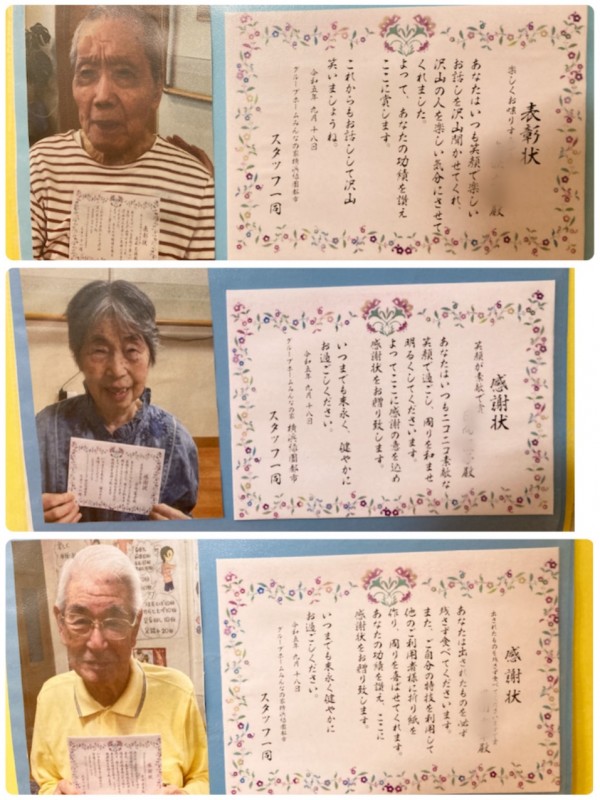 表彰状
楽しくお喋りす
殿
あなたはいつも笑顔で楽しい
お話しを沢山聞かせてくれ、
沢山の人を楽しい気分にさせて
くれました。
よって、あなたの功績を讃え
ここに賞します。
これからもお話しして沢山
笑いましょうね。
令和五年 九月 十八日
グループホームみんなの家横浜脇園都市
スタッフ一同
感謝状
笑顔が素敵で賞
殿
あなたはいつもニコニコ素敵な
笑顔で過ごし、周りを和ませ
明るくしてくださいます。
よってここに感謝の意を込め
感謝状をお贈り致します。
いつまでも末永く、健やかに
お過ごしください。
令和五年 九月 十八日
グループホームみんなの家 横浜
スタッフ一同
感謝状
殿
あなたは出されたものを必ず
残さず食べてくださいます。
また、ご自分の特技を利用して
他のご利用者様に折り紙を
作り、周りを喜ばせてくれます。
あなたの功績を讃え、ここに
感謝状をお贈り致します。
いつまでも末永く健やかに
お過ごしください。
令和五年 九月 十八日
グループホームみんなの家横浜
スタッフ一同